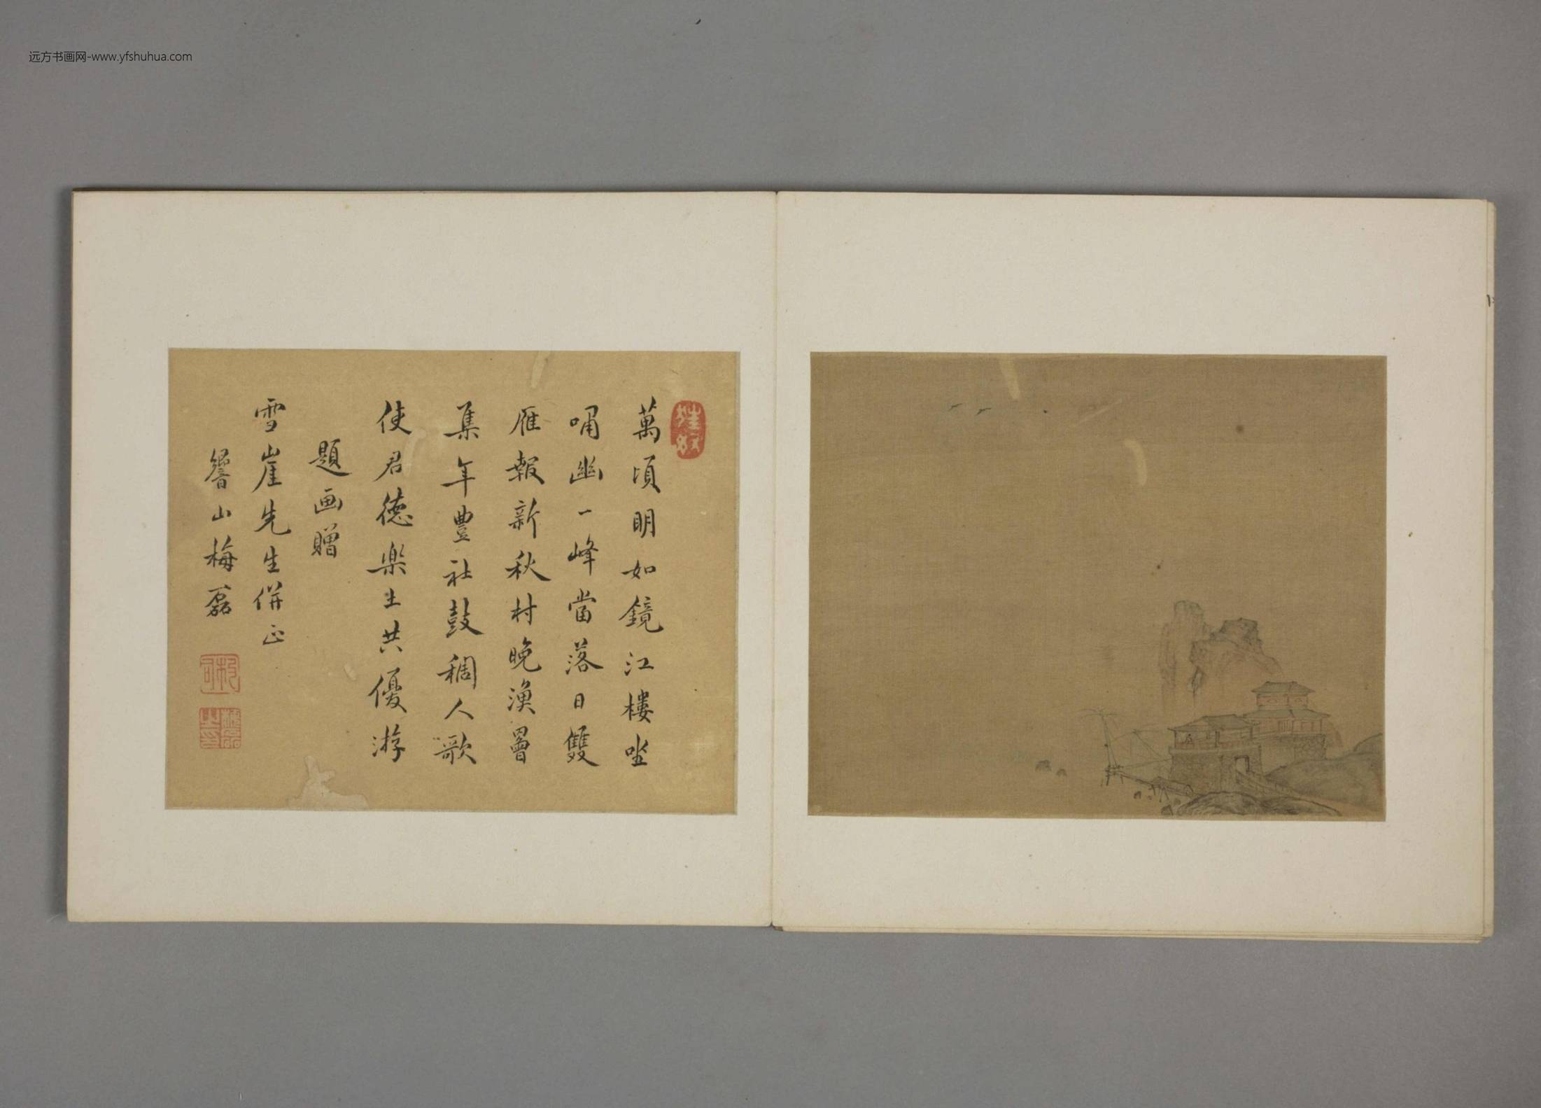 远方书画网-www.yfshuhua.com
萬頃明如鏡江樓坐
嘯幽一峰當落日雙
雁報新秋村晚漁罾
集年豐社鼓稠人歌
使君德樂土共優游
題画贈
雪崖先生併正
響山梅磊